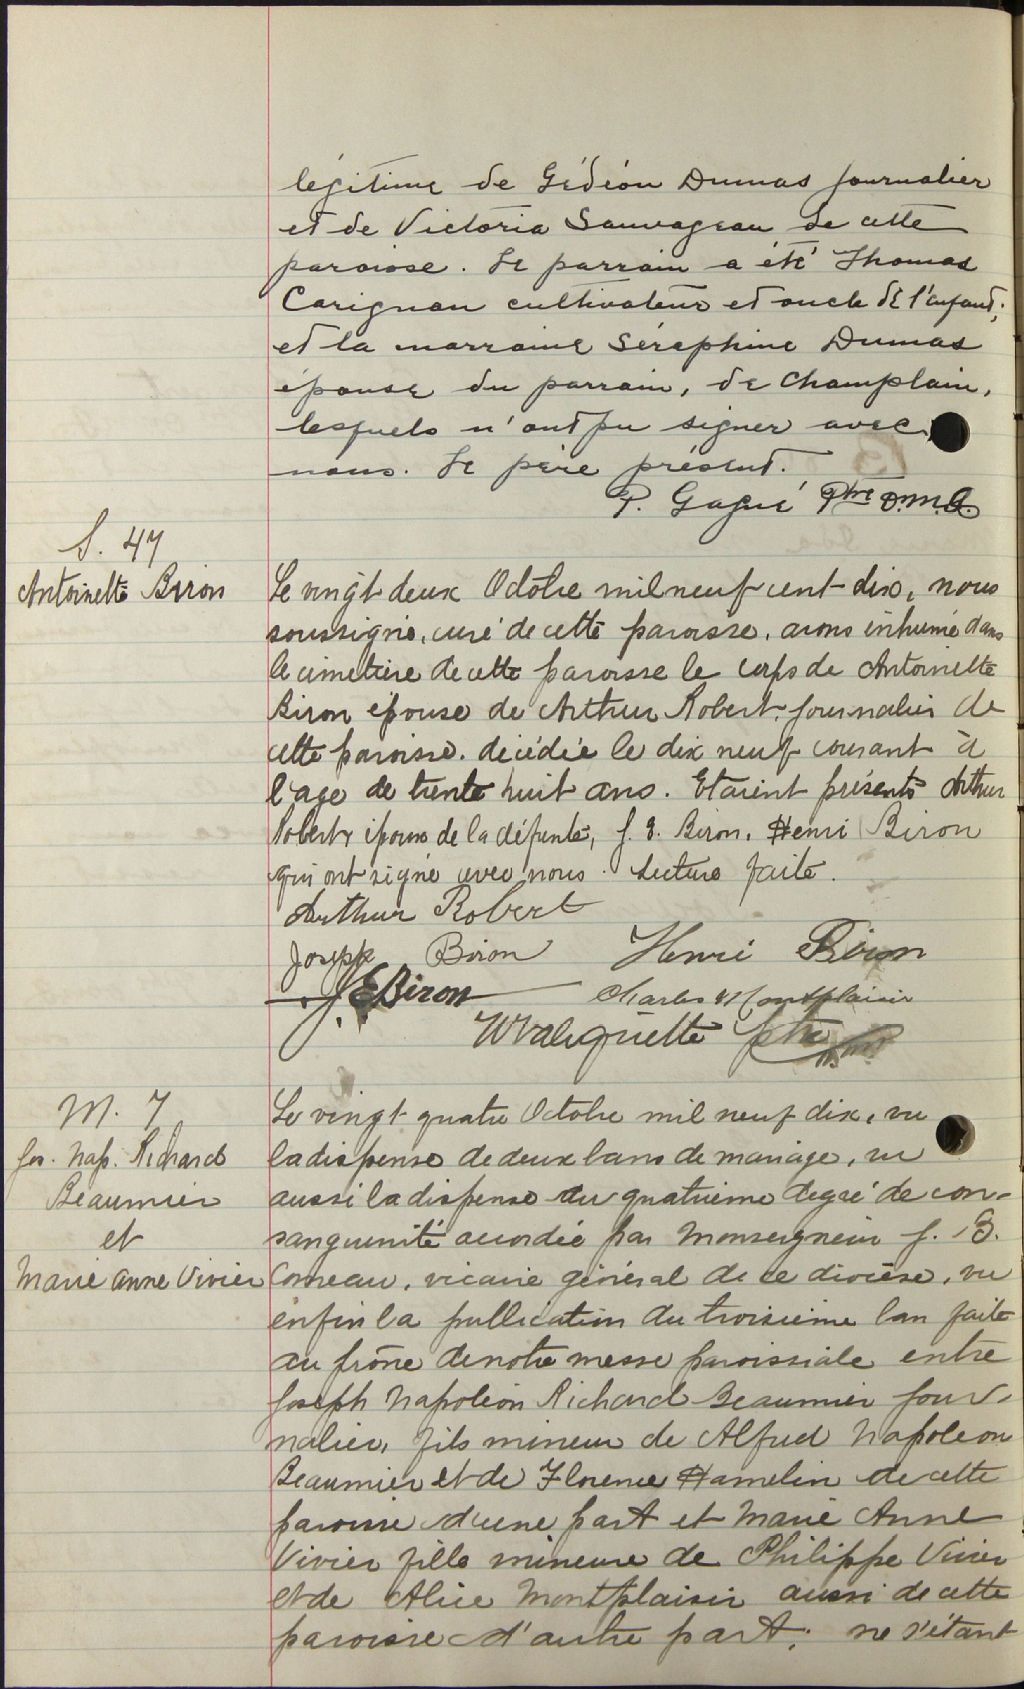 légitime de Gédéon Dumas journalier
et de Victoria Sauvageau de cette
paroisse. Le parrain a été Thomas
Carignan cultivateur et oncle de l'enfant;
et la marraine Séraphine Dumas
épouse du parrain, de Champlain,
lesquels n'ont pu signer avec
nous. Le père présent.
P. Gagné Ptre D.M.A.
S. 47
Antoinette Biron
Le vingt deux Octobre mil neuf cent dix, nous
soussigné, curé de cette paroisse, avons inhumé dans
le cimetière de cette paroisse le corps de Antoinette
Biron épouse de Arthur Robert, journalier de
cette paroisse. décédée le dix neuf courant à
l'age de trente huit ans. Etaient présents Arthur
Robert, époux de la défunte, J. E. Biron, Henri Biron
qui ont signé avec nous. Lecture faite.
Arthur Robert
Joseph Biron Henri Biron
J. E Biron Charles Montplaisir
Walquette ptre
M. 7
Jos. Nap. Richard
Beaumier
et
Marie Anne Vivier
Le vingt quatre Octobre mil neuf dix, vu
la dispense de deux bans de mariage, vu
aussi la dispense du quatrième degré de con-
sanguinité accordée par Monseigneur J. B.
Comeau, vicaire général de ce diocèse, vu
enfin la publication du troisième ban faite
au prône de notre messe paroissiale entre
Joseph Napoléon Richard Beaumier jour-
nalier, fils mineur de Alfred Napoléon
Beaumier et de Florence Hamelin de cette
paroisse d'une part et Marie Anne
Vivier fille mineure de Philippe Vivier
et de Alice Montplaisir aussi de cette
paroisse d'autre part; ne s'étant